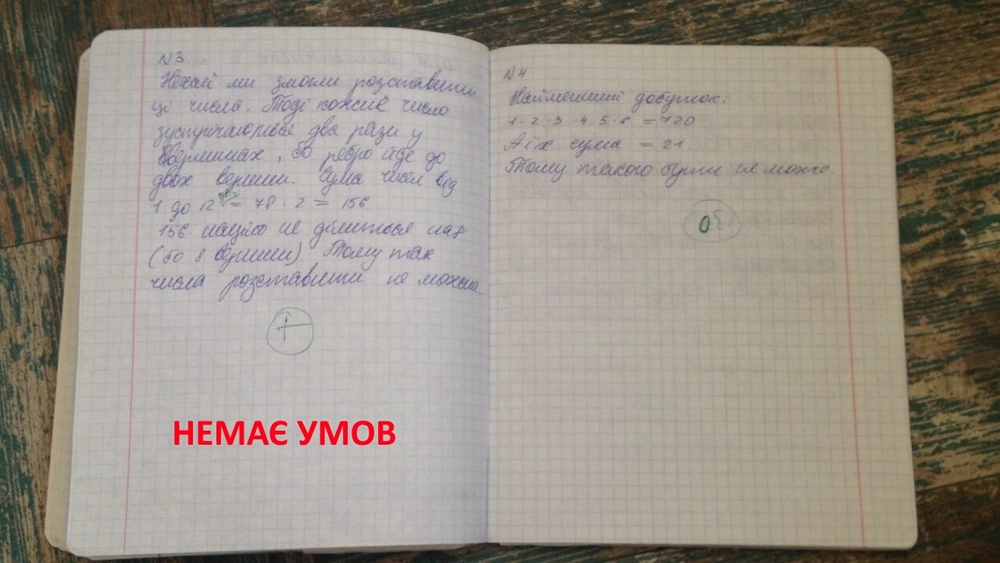 N3
Нехай ми змогли розставити
ці числа. Тоді кожне число
зустрічається два рази у
вершинах, бо ребро йде до
двох вершин. Сума чисел від
1 до 12 = 78 · 2 = 156
156 націло не ділиться на 8
(бо 8 вершин) Тому так
числа розставити не можна.
НЕМАЄ УМОВ
N4
Найменший добуток:
1 · 2 · 3 · 4 · 5 · 6 = 720
А їх сума = 21.
Тому такого бути не може